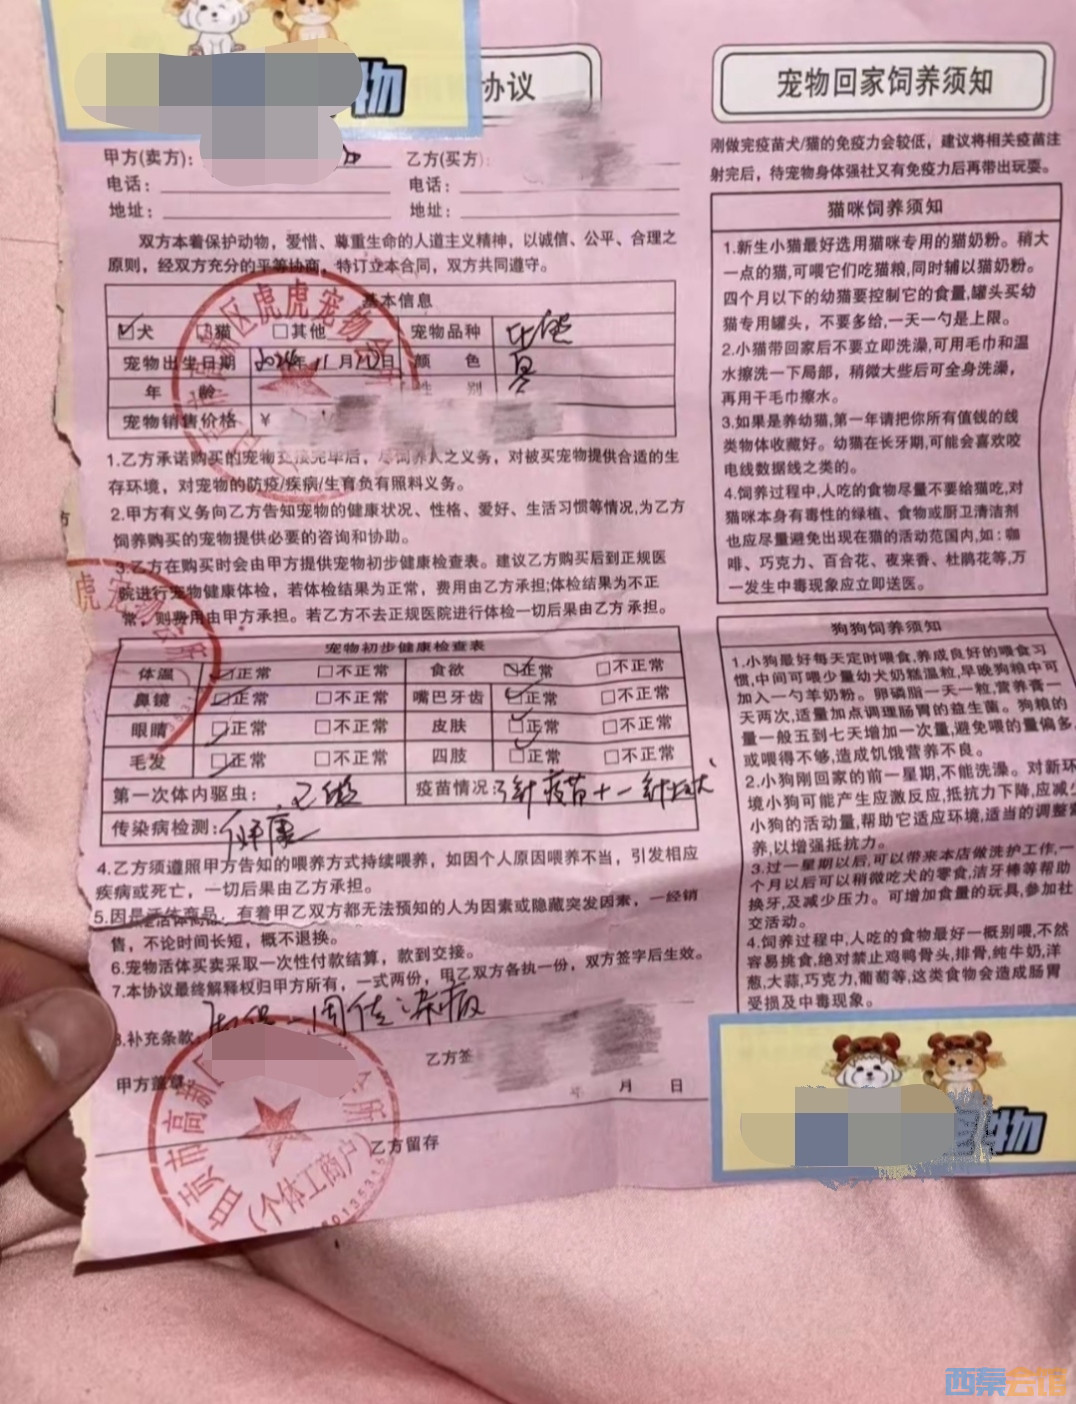 物
协议
甲方(卖方):
乙方(买方):
电话:
电话:
地址:
地址:
双方本着保护动物，爱惜、尊重生命的人道主义精神，以诚信、公平、合理之
原则，经双方充分的平等协商，特订立本合同，双方共同遵守。
基本信息
犬 猫 其他 宠物品种 比熊
宠物出生日期 2024年11月10日 颜 色
年 龄 性 别
宠物销售价格 ￥
1.乙方承诺购买的宠物交接完毕后，尽饲养人之义务，对被买宠物提供合适的生
存环境，对宠物的防疫/疾病/生育负有照料义务。
2.甲方有义务向乙方告知宠物的健康状况、性格、爱好、生活习惯等情况,为乙方
饲养购买的宠物提供必要的咨询和协助。
3.乙方在购买时会由甲方提供宠物初步健康检查表。建议乙方购买后到正规医
院进行宠物健康体检，若体检结果为正常，费用由乙方承担;体检结果为不正
常，则费用由甲方承担。若乙方不去正规医院进行体检一切后果由乙方承担。
宠物初步健康检查表
体温 正常 不正常 食欲 正常 不正常
鼻镜 正常 不正常 嘴巴牙齿 正常 不正常
眼睛 正常 不正常 皮肤 正常 不正常
毛发 正常 不正常 四肢 正常 不正常
第一次体内驱虫: 已做 疫苗情况: 3针疫苗+一针狂犬
传染病检测: 健康
4.乙方须遵照甲方告知的喂养方式持续喂养，如因个人原因喂养不当，引发相应
疾病或死亡，一切后果由乙方承担。
5.因是活体商品，有着甲乙双方都无法预知的人为因素或隐藏突发因素，一经销
售，不论时间长短，概不退换。
6.宠物活体买卖采取一次性付款结算，款到交接。
7.本协议最终解释权归甲方所有，一式两份，甲乙双方各执一份，双方签字后生效。
8.补充条款: 质保一周传染病
甲方盖章:
乙方签
年 月 日
乙方留存
高新区虎虎宠物会所
虎宠物会所
市高新区
会所
(个体工商户)
宠物回家饲养须知
刚做完疫苗犬/猫的免疫力会较低，建议将相关疫苗注
射完后，待宠物身体强壮又有免疫力后再带出玩耍。
猫咪饲养须知
1.新生小猫最好选用猫咪专用的猫奶粉。稍大
一点的猫,可喂它们吃猫粮,同时辅以猫奶粉。
四个月以下的幼猫要控制它的食量,罐头买幼
猫专用罐头，不要多给,一天一勺是上限。
2.小猫带回家后不要立即洗澡,可用毛巾和温
水擦洗一下局部，稍微大些后可全身洗澡，
再用干毛巾擦水。
3.如果是养幼猫,第一年请把你所有值钱的线
类物体收藏好。幼猫在长牙期,可能会喜欢咬
电线数据线之类的。
4.饲养过程中,人吃的食物尽量不要给猫吃,对
猫咪本身有毒性的绿植、食物或厨卫清洁剂
也应尽量避免出现在猫的活动范围内,如:咖
啡、巧克力、百合花、夜来香、杜鹃花等,万
一发生中毒现象应立即送医。
狗狗饲养须知
1.小狗最好每天定时喂食,养成良好的喂食习
惯,中间可喂少量幼犬奶糕温粒,早晚狗粮中可
加入一勺羊奶粉。卵磷脂一天一粒,营养膏一
天两次,适量加点调理肠胃的益生菌。狗粮的
量一般五到七天增加一次量,避免喂的量偏多
或喂得不够,造成饥饿营养不良。
2.小狗刚回家的前一星期,不能洗澡。对新环
境小狗可能产生应激反应,抵抗力下降,应减少
小狗的活动量,帮助它适应环境,适当的调整
养,以增强抵抗力。
3.过一星期以后,可以带来本店做洗护工作,一
个月以后可以稍微吃犬的零食,洁牙棒等帮助
换牙,及减少压力。可增加食量的玩具,参加社
交活动。
4.饲养过程中,人吃的食物最好一概别喂,不然
容易挑食,绝对禁止鸡鸭骨头,排骨,纯牛奶,洋
葱,大蒜,巧克力,葡萄等,这类食物会造成肠胃
受损及中毒现象。
物
西秦会馆